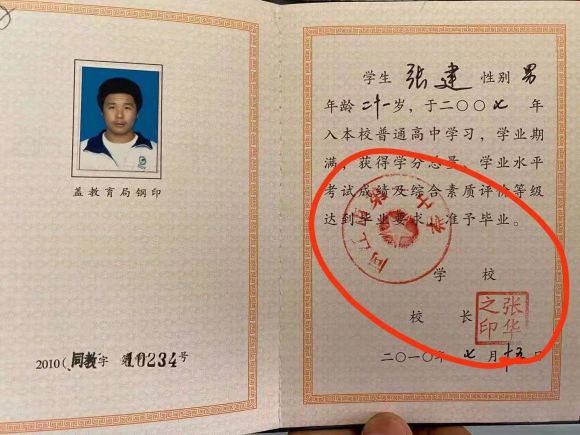 盖教育局钢印
2010(.同教字 第10234号
学生 张建 性别 男
年龄 二十一岁，于二〇〇七 年
入本校普通高中学习，学业期
满，获得学分总量、学业水平
考试成绩及综合素质评价等级
达到毕业要求，准予毕业。
同江市第一中学
学 校
校 长
张华之印
二〇一〇年 七 月 十五日